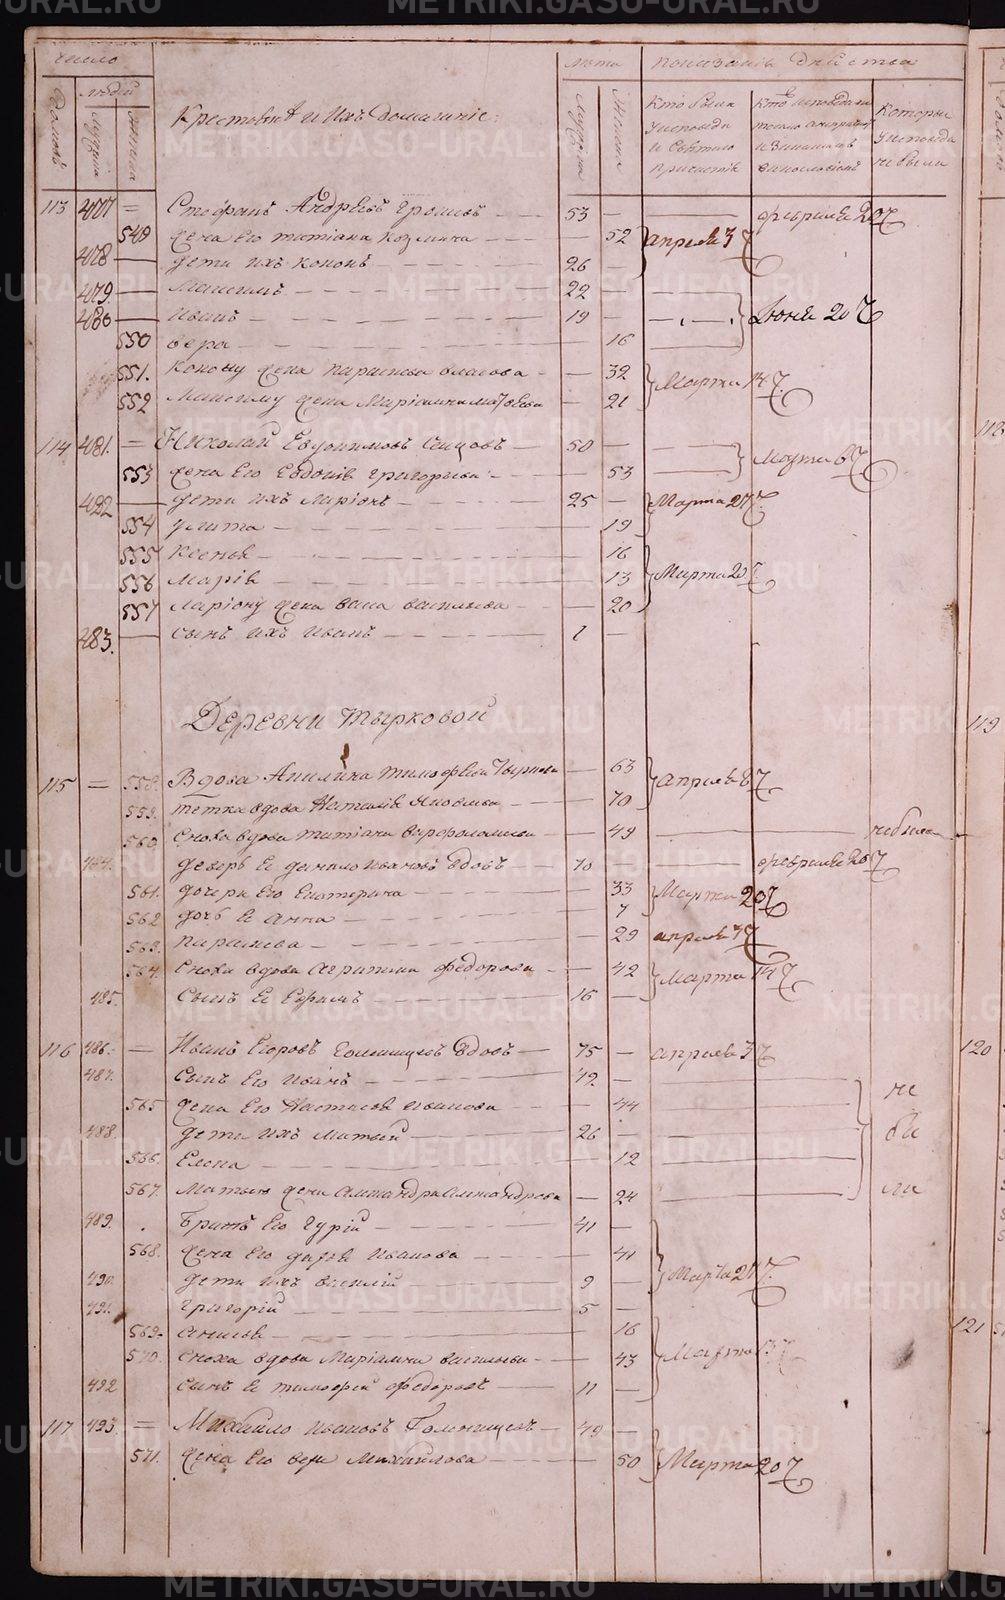 METRIKI.GASO-URAL.RU
число
людей
домовъ
мужска
женска
Крестьяне и ихъ домашніе:
лѣта
мужска
женска
показаніе дѣйства
Кто были у исповѣди и святаго причастія
Кто исповѣдались токмо а не причастились и за какимъ винословіемъ
Которые у исповѣди не были
113 477 = Стефанъ Андреевъ 53 — февраля 20
549 жена Его татіана Козмина — 52 апреля 3
478 — дети ихъ кононъ 26
479. — Максимъ 22
480 — иванъ 19 — июня 20
550 вера — 16
551. конону жена парасковья власова — 32 Марта 14
552 Максиму жена Маріамна матвеева — 21
114 481. = Николай Евдокимовъ 50 — Марта 6
553 жена Его Евдокія григорьева — 53
482 — дети ихъ ларіонъ 25 — Марта 27
554 улита — 19
555 ксенья — 16
556 Марія — 13 Марта 20
557 ларіону жена васильева — 20
483. — сынъ ихъ иванъ 1 —
Деревни Тырковой
115 = 558. Вдова Акилина тимофеева — 63 апреля 8
559. тетка вдова Наталія Яковлева — 70
560 сноха вдова татіана варфоломеева — 49 не была
484. деверь Ее данило ивановъ вдовъ 70 — февраля 20
561. дочери Его Екатерина — 33 Марта 20
562 дочь Ее Анна — 7
563. парасковья — 29 апреля 3
564. сноха вдова Агрипина федорова — 42 Марта 14
485. сынъ Ее Ефимъ 16 —
116 486. — Иванъ Егоровъ вдовъ 75 — апреля 3
487. сынъ Его иванъ 42 —
565 жена Его Настасья иванова — 44
488. дети ихъ матвей 26 —
не
бы
ли
566. Елена — 12
567. Матвею жена александра александрова — 24
489. . братъ Его гурій 41 —
568. жена Его дарья иванова — 41
490. дети ихъ василій 9 — Марта 27
491. григорій 5 —
569. анисья — 16
570. сноха вдова Маріамна васильева — 43 Марта 13
492 сынъ Ее тимофей федоровъ 11 —
117 493. = Михайло ивановъ 49 —
571. жена Его вера Михайлова — 50 Марта 20
118
119
120
121